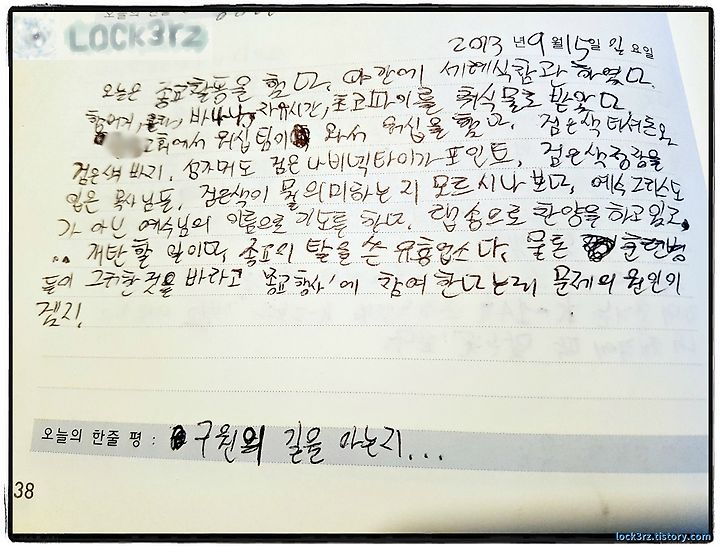 LOCK3rz
2013년 9월 15일 일 요일
오늘은 종교활동을 했다. 야간에 세례식참관 하였다.
햄버거, 콜라, 바나나, 자유시간, 초코파이를 취식물로 받았다
교회에서 워십팀이 와서 워십을 했다. 검은색 티셔츠와
검은색 바지, 섬자머도 검은 나비넥타이가 포인트, 검은색정장을
입은 목사님들, 검은색이 뭘 의미하는 지 모르시나 보다, 예수 그리스도
가 아닌 예수님의 이름으로 기도를 한다. 랩송으로 찬양을 하고 있고,
개탄할 일이다, 종교의 탈을 쓴 유흥업소다. 물론 훈련병
들이 그러한것을 바라고 '종교행사'에 참여 한다는게 문제의 원인이
겠지.
오늘의 한줄 평 : 구원의 길을 아는지...
38
lock3rz.tistory.com